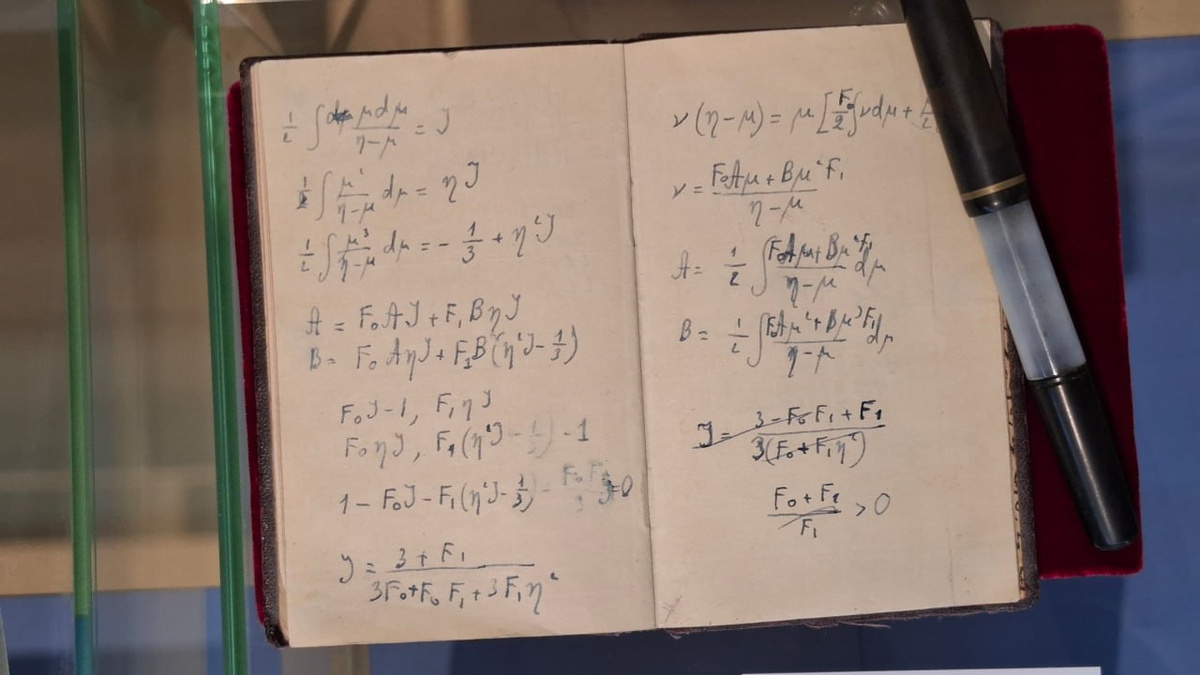 ½ ∫ μdμ/(η-μ) = J
½ ∫ μ²/(η-μ) dμ = ηJ
½ ∫ μ³/(η-μ) dμ = -1/3 + η²J
A = F₀AJ + F₁BηJ
B = F₀AηJ + F₁B(η²J - 1/3)
F₀J-1, F₁ηJ
F₀ηJ, F₁(η²J - 1/3) - 1
1 - F₀J - F₁(η²J - 1/3) - F₀F₁/3 J = 0
J = (3 + F₁)/(3F₀ + F₀F₁ + 3F₁η²)
ν(η-μ) = μ[F₀/2 ∫νdμ +
ν = (F₀Aμ + Bμ²F₁)/(η-μ)
A = ½ ∫ (F₀Aμ + Bμ²F₁)/(η-μ) dμ
B = ½ ∫ (F₀Aμ² + Bμ³F₁)/(η-μ) dμ
J = (3 - F₀F₁ + F₁)/(3(F₀ + F₁η²))
(F₀ + F₁)/F₁ > 0